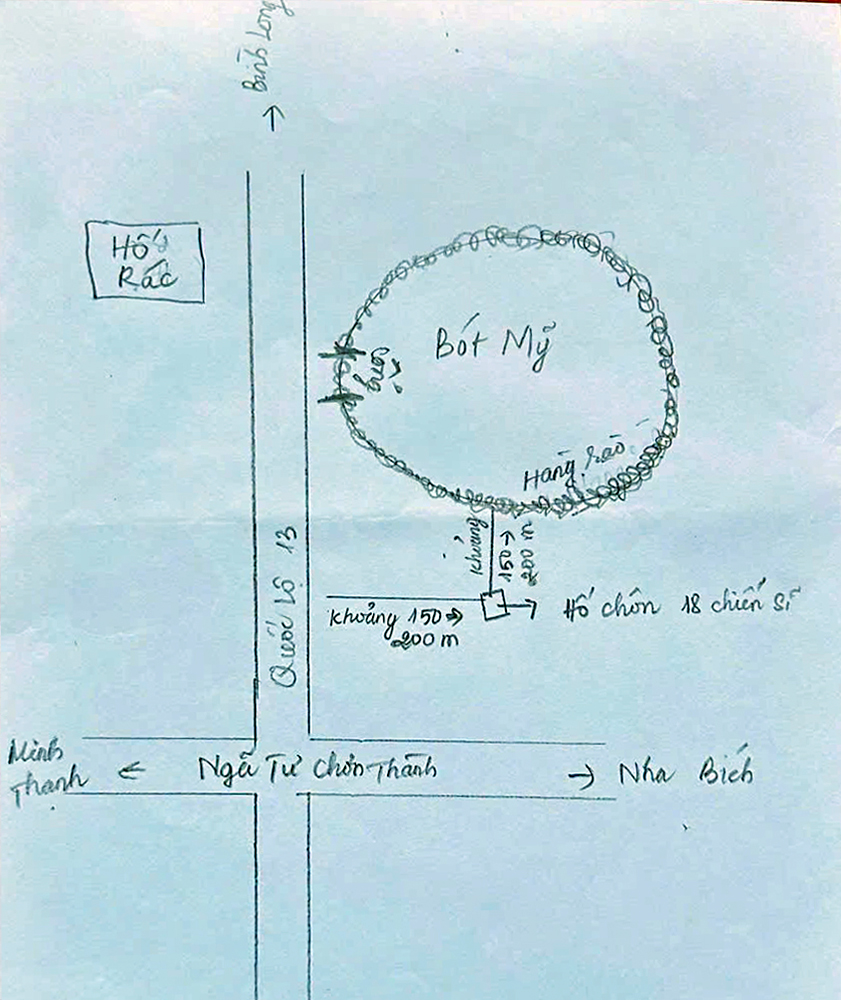 Bình Long
→
Hố
Rác
Bót Mỹ
Cổng
Hàng rào
khoảng
150 →
200 m
khoảng 150 →
200 m
→ Hố chôn 18 chiến sĩ
Quốc Lộ 13
Minh
Thanh ←
Ngã Tư Chơn Thành
→ Nha Bích